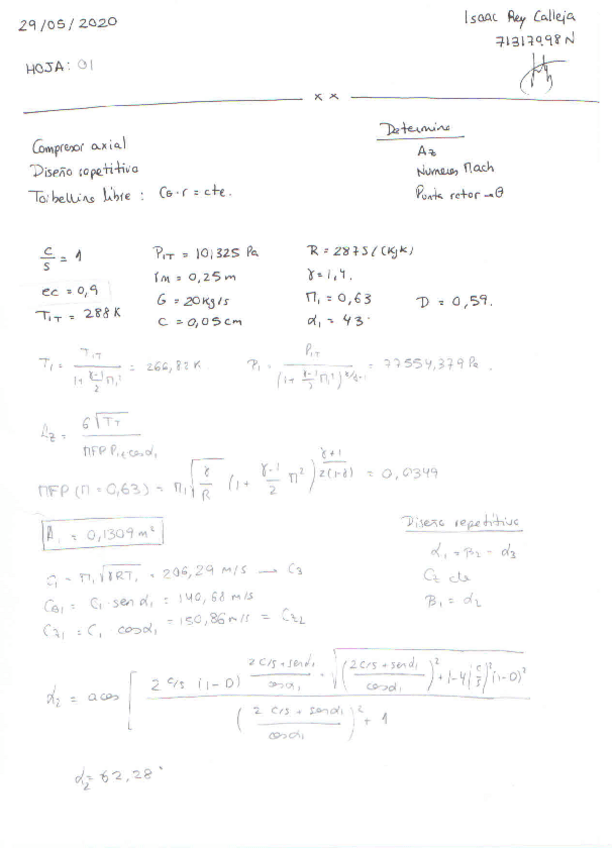 29/05/2020
Isaac Rey Calleja
71317998N
HOJA: 01
Compresor axial
Diseño repetitivo
Torbellino libre : Cθ·r = cte.
Determine
Az
Numeros Mach
Punta rotor → θ
c/s = 1
ec = 0,9
T1T = 288K
P1T = 101325 Pa
rm = 0,25m
G = 20Kg/s
C = 0,05cm
R = 287J/(KgK)
γ = 1,4.
M1 = 0,63
α1 = 43°
D = 0,59.
T1 = T1T / (1 + (γ-1)/2 M1²) = 266,82K
P1 = P1T / (1 + (γ-1)/2 M1²)^(γ/γ-1) = 77554,379 Pa.
Az = G√TT / (MFP P1t cosα1)
MFP (M = 0,63) = M1 √(γ/R) (1 + (γ-1)/2 M²)^((γ+1)/2(1-γ)) = 0,0349
A1 = 0,1309 m²
Diseño repetitivo
α1 = β2 = α3
Cz cte
β1 = α2
C1 = M1 √γRT1 = 206,29 m/s → C3
Cθ1 = C1 · sen α1 = 140,68 m/s
Cz1 = C1 cosα1 = 150,86 m/s = Cz2
α2 = acos [ (2 c/s (1-D) (2 c/s + senα1)/cosα1 · √(((2 c/s + senα1)/cosα1)² + 1 - 4(c/s)² (1-D)²)) / (((2 c/s + senα1)/cosα1)² + 1)
α2 = 62,28°